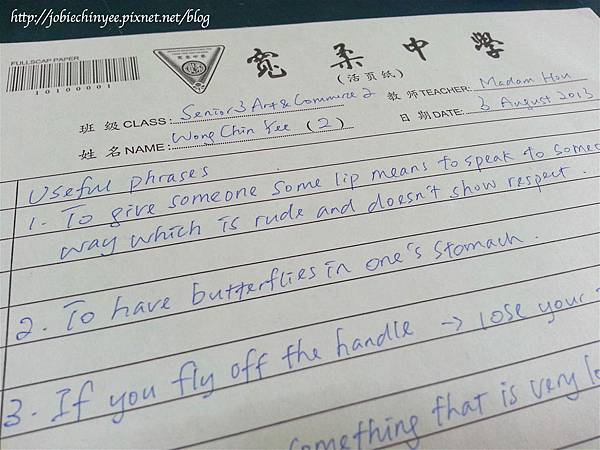 http://jobiechinyee.pixnet.net/blog
FULLSCAP PAPER
10100001
寬柔中學
(活页紙)
班 級 CLASS: Senior 3 Art & Commerce 2 教 师 TEACHER: Madam Hou
姓 名 NAME: Wong Chin Yee (2) 日 期 DATE: 3 August 2013
Useful phrases
1. To give someone some lip means to speak to
way which is rude and doesn't show respect.
2. To have butterflies in one's stomach.
3. If you fly off the handle → lose your
something that is very